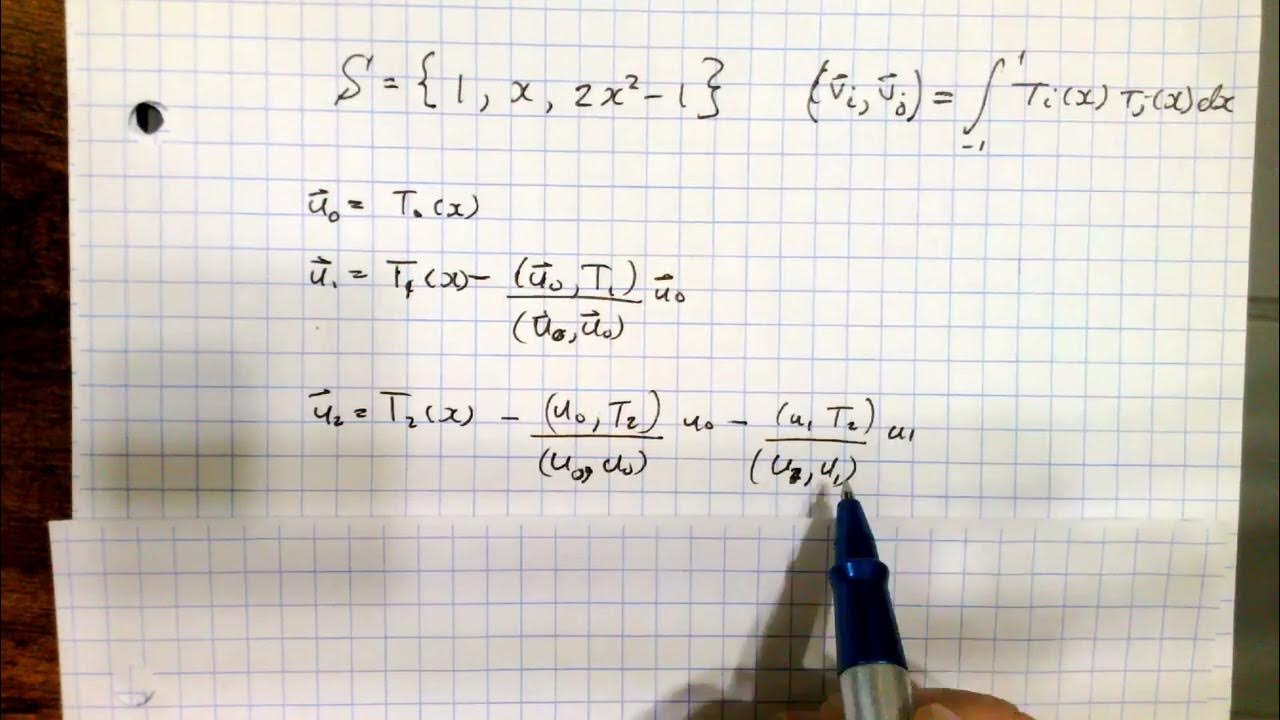 S = {1, x, 2x² - 1} (v⃗ᵢ, v⃗ⱼ) = ∫₋₁¹ Tᵢ(x) Tⱼ(x) dx
u⃗₀ = T₀(x)
u⃗₁ = T₁(x) - (u⃗₀, T₁) / (u⃗₀, u⃗₀) u⃗₀
u⃗₂ = T₂(x) - (u₀, T₂) / (u₀, u₀) u₀ - (u₁ T₂) / (u₁, u₁) u₁